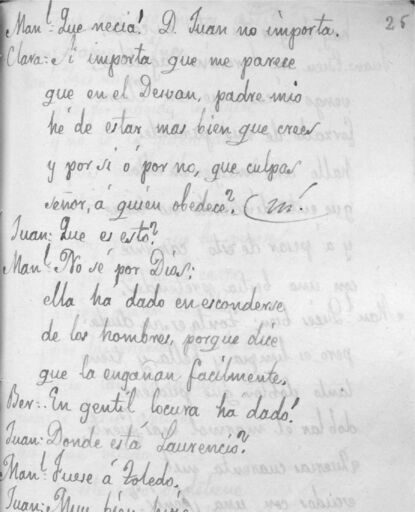 26
Man!: Que necia! D. Juan no importa.
Clara: Si importa que me parece
que en el Desvan, padre mio
hé de estar mas bien que crees
y por si ó por no, que culpas
señor, á quien obedece?
Juan: Que es esto?
Man!: No sé por Dios;
ella ha dado en esconderse
de los hombres, porque dice
que la engañan facilmente.
Ber.: En gentil locura ha dado!
Juan: Donde está Laurencio?
Man!: Fuese á Toledo.
Juan: Muy bien hizo